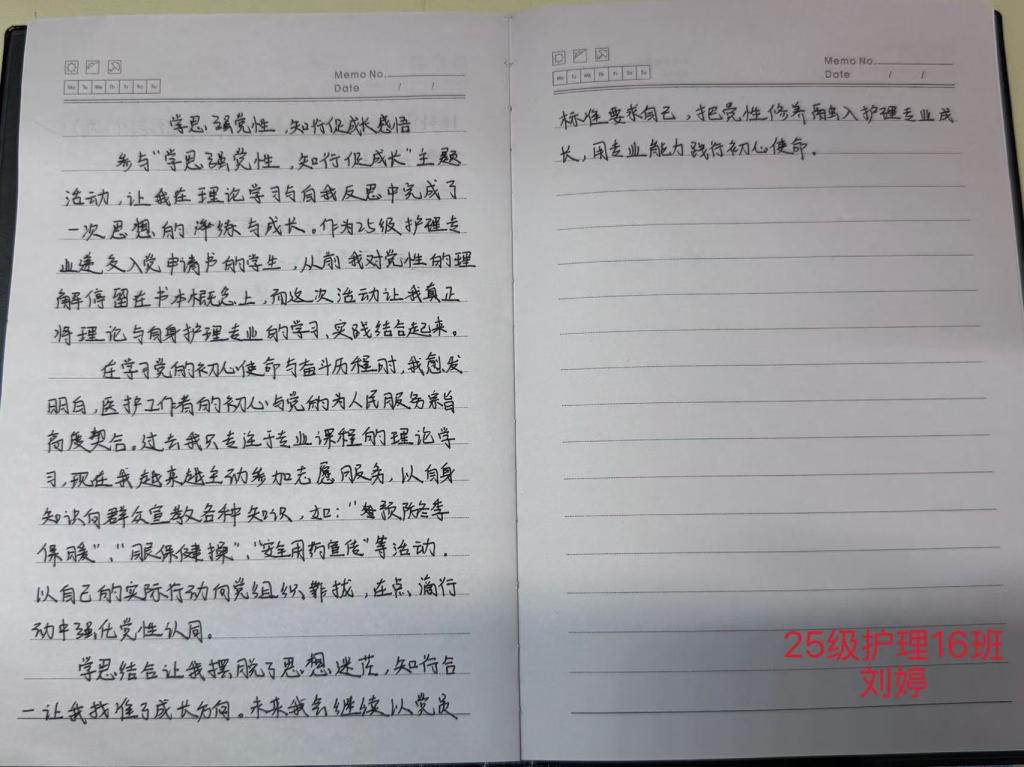 Memo No.
Date / /
Mo Tu We Th Fr Sa Su
学思强党性，知行促成长感悟
参与“学思强党性，知行促成长”主题
活动，让我在理论学习与自我反思中完成了
一次思想的淬练与成长。作为25级护理专
业递交入党申请书的学生，从前我对党性的理
解停留在书本概念上，而这次活动让我真正
将理论与自身护理专业的学习、实践结合起来。
在学习党的初心使命与奋斗历程时，我愈发
明白，医护工作者的初心与党的为人民服务宗旨
高度契合。过去我只专注于专业课程的理论学
习，现在我越来越主动参加志愿服务，以自身
知识向群众宣教各种知识，如：“预防冬季
保暖”、“眼保健操”、“安全用药宣传”等活动。
以自己的实际行动向党组织靠找，在点滴行
动中强化党性认同。
学思结合让我摆脱了思想迷茫，知行合
一让我找准了成长方向。未来我会继续以党员
Memo No.
Date / /
Mo Tu We Th Fr Sa Su
标准要求自己，把党性修养融入护理专业成
长，用专业能力践行初心使命。
25级护理16班
刘婷